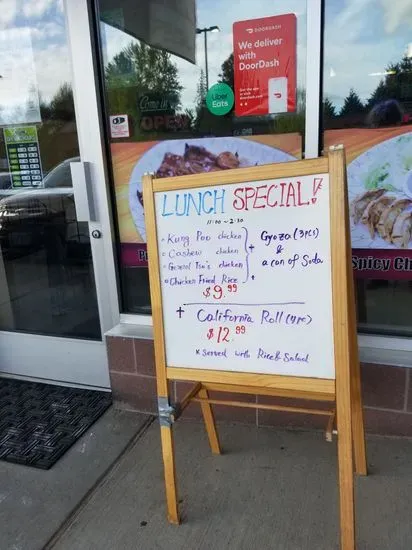 DOORDASH
We deliver with DoorDash
Uber Eats
Come in
OPEN
LUNCH SPECIAL!
11:00 ~ 2:30
Kung Pao chicken
Cashew chicken
General Tso's chicken
Chicken Fried Rice
+ Gyoza (3pcs)
&
a can of Soda
$9.99
+ California Roll (4pc)
$12.99
* Served with Rice & Salad
Spicy Ch